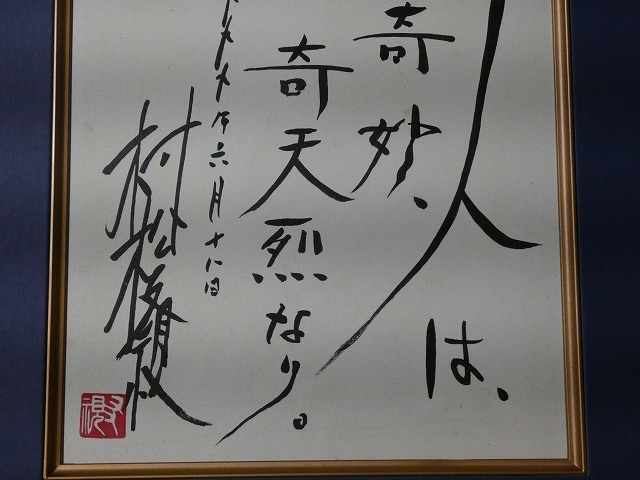 人は、
奇妙、
奇天烈なり。
年六月十八日
村松友視